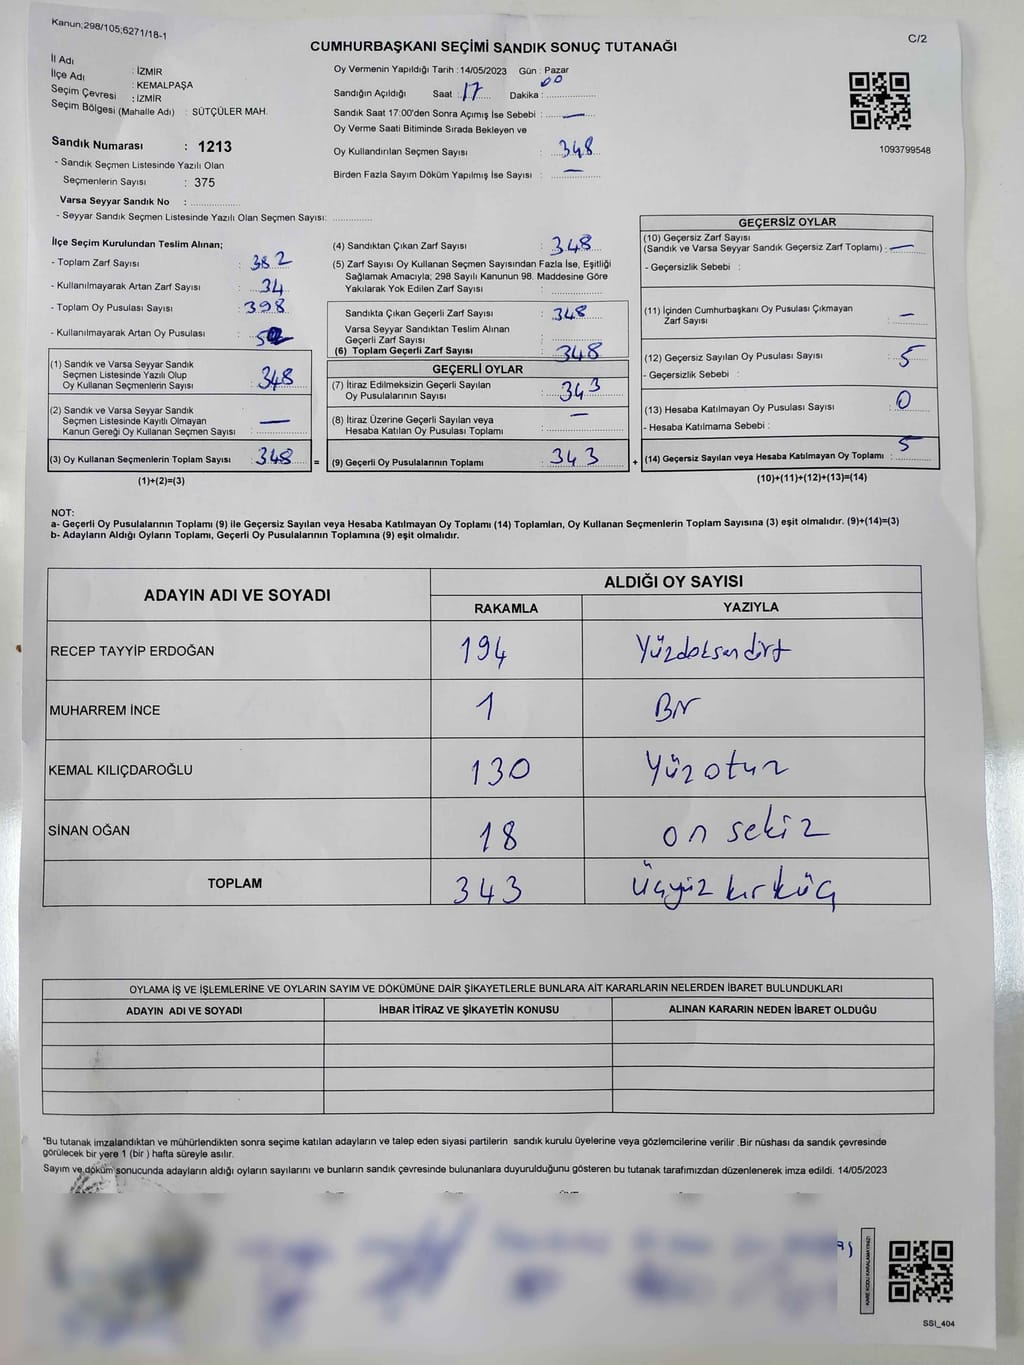 Kanun;298/105;6271/18-1
C/2
CUMHURBAŞKANI SEÇİMİ SANDIK SONUÇ TUTANAĞI
İl Adı : İZMİR
İlçe Adı : KEMALPAŞA
Seçim Çevresi : İZMİR
Seçim Bölgesi (Mahalle Adı) : SÜTÇÜLER MAH.
Sandık Numarası : 1213
- Sandık Seçmen Listesinde Yazılı Olan
Seçmenlerin Sayısı : 375
Varsa Seyyar Sandık No :
- Seyyar Sandık Seçmen Listesinde Yazılı Olan Seçmen Sayısı:
Oy Vermenin Yapıldığı Tarih :14/05/2023 Gün : Pazar
Sandığın Açıldığı Saat : 17 Dakika : 00
Sandık Saat 17:00'den Sonra Açımış İse Sebebi : —
Oy Verme Saati Bitiminde Sırada Bekleyen ve
Oy Kullandırılan Seçmen Sayısı : 348
Birden Fazla Sayım Döküm Yapılmış İse Sayısı : —
1093799548
İlçe Seçim Kurulundan Teslim Alınan;
- Toplam Zarf Sayısı : 382
- Kullanılmayarak Artan Zarf Sayısı : 34
- Toplam Oy Pusulası Sayısı : 398
- Kullanılmayarak Artan Oy Pusulası :
(1) Sandık ve Varsa Seyyar Sandık
Seçmen Listesinde Yazılı Olup
Oy Kullanan Seçmenlerin Sayısı : 348
(2) Sandık ve Varsa Seyyar Sandık
Seçmen Listesinde Kayıtlı Olmayan
Kanun Gereği Oy Kullanan Seçmen Sayısı : —
(3) Oy Kullanan Seçmenlerin Toplam Sayısı : 348
(1)+(2)=(3)
(4) Sandıktan Çıkan Zarf Sayısı : 348
(5) Zarf Sayısı Oy Kullanan Seçmen Sayısından Fazla İse, Eşitliği
Sağlamak Amacıyla; 298 Sayılı Kanunun 98. Maddesine Göre
Yakılarak Yok Edilen Zarf Sayısı :
Sandıkta Çıkan Geçerli Zarf Sayısı : 348
Varsa Seyyar Sandıktan Teslim Alınan
Geçerli Zarf Sayısı :
(6) Toplam Geçerli Zarf Sayısı : 348
GEÇERLİ OYLAR
(7) İtiraz Edilmeksizin Geçerli Sayılan
Oy Pusulalarının Sayısı : 343
(8) İtiraz Üzerine Geçerli Sayılan veya
Hesaba Katılan Oy Pusulası Toplamı : —
= (9) Geçerli Oy Pusulalarının Toplamı : 343
GEÇERSİZ OYLAR
(10) Geçersiz Zarf Sayısı
(Sandık ve Varsa Seyyar Sandık Geçersiz Zarf Toplamı) : —
- Geçersizlik Sebebi :
(11) İçinden Cumhurbaşkanı Oy Pusulası Çıkmayan
Zarf Sayısı : —
(12) Geçersiz Sayılan Oy Pusulası Sayısı : 5
- Geçersizlik Sebebi :
(13) Hesaba Katılmayan Oy Pusulası Sayısı : 0
- Hesaba Katılmama Sebebi :
+ (14) Geçersiz Sayılan veya Hesaba Katılmayan Oy Toplamı : 5
(10)+(11)+(12)+(13)=(14)
NOT:
a- Geçerli Oy Pusulalarının Toplamı (9) ile Geçersiz Sayılan veya Hesaba Katılmayan Oy Toplamı (14) Toplamları, Oy Kullanan Seçmenlerin Toplam Sayısına (3) eşit olmalıdır. (9)+(14)=(3)
b- Adayların Aldığı Oyların Toplamı, Geçerli Oy Pusulalarının Toplamına (9) eşit olmalıdır.
ADAYIN ADI VE SOYADI ALDIĞI OY SAYISI
RAKAMLA YAZIYLA
RECEP TAYYİP ERDOĞAN 194 Yüzdoksandört
MUHARREM İNCE 1 Bir
KEMAL KILIÇDAROĞLU 130 Yüzotuz
SİNAN OĞAN 18 on sekiz
TOPLAM 343 Üçyüz kırküç
OYLAMA İŞ VE İŞLEMLERİNE VE OYLARIN SAYIM VE DÖKÜMÜNE DAİR ŞİKAYETLERLE BUNLARA AİT KARARLARIN NELERDEN İBARET BULUNDUKLARI
ADAYIN ADI VE SOYADI İHBAR İTİRAZ VE ŞİKAYETİN KONUSU ALINAN KARARIN NEDEN İBARET OLDUĞU
*Bu tutanak imzalandıktan ve mühürlendikten sonra seçime katılan adayların ve talep eden siyasi partilerin sandık kurulu üyelerine veya gözlemcilerine verilir .Bir nüshası da sandık çevresinde
görülecek bir yere 1 (bir ) hafta süreyle asılır.
Sayım ve döküm sonucunda adayların aldığı oyların sayılarını ve bunların sandık çevresinde bulunanlara duyurulduğunu gösteren bu tutanak tarafımızdan düzenlenerek imza edildi. 14/05/2023
KARE KODU KARALAMAYINIZ!
SSI_404